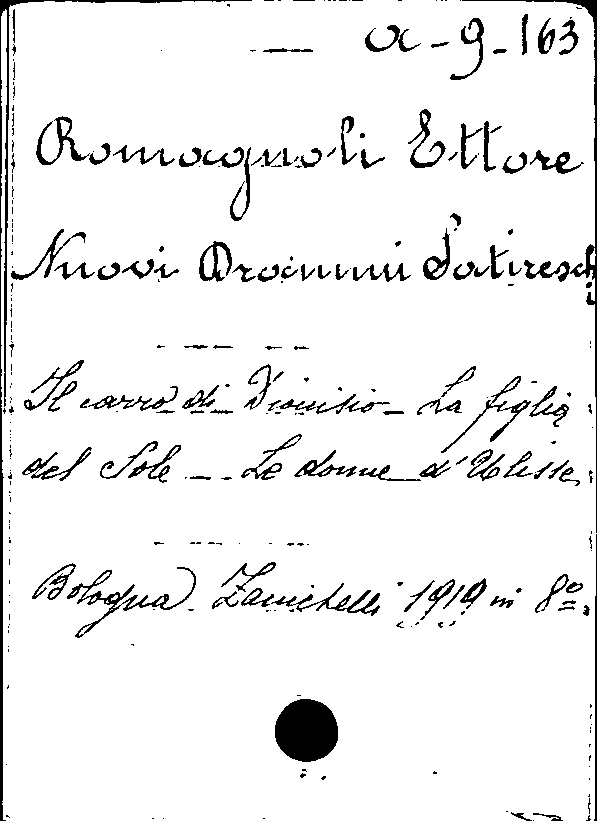 — a-9-163
Romagnoli Ettore
Nuovi Drammi Satireschi
Il carro di Dioniso - La figlia
del Sole - Le donne d'Ulisse
Bologna. Zanichelli 1919 in 8º